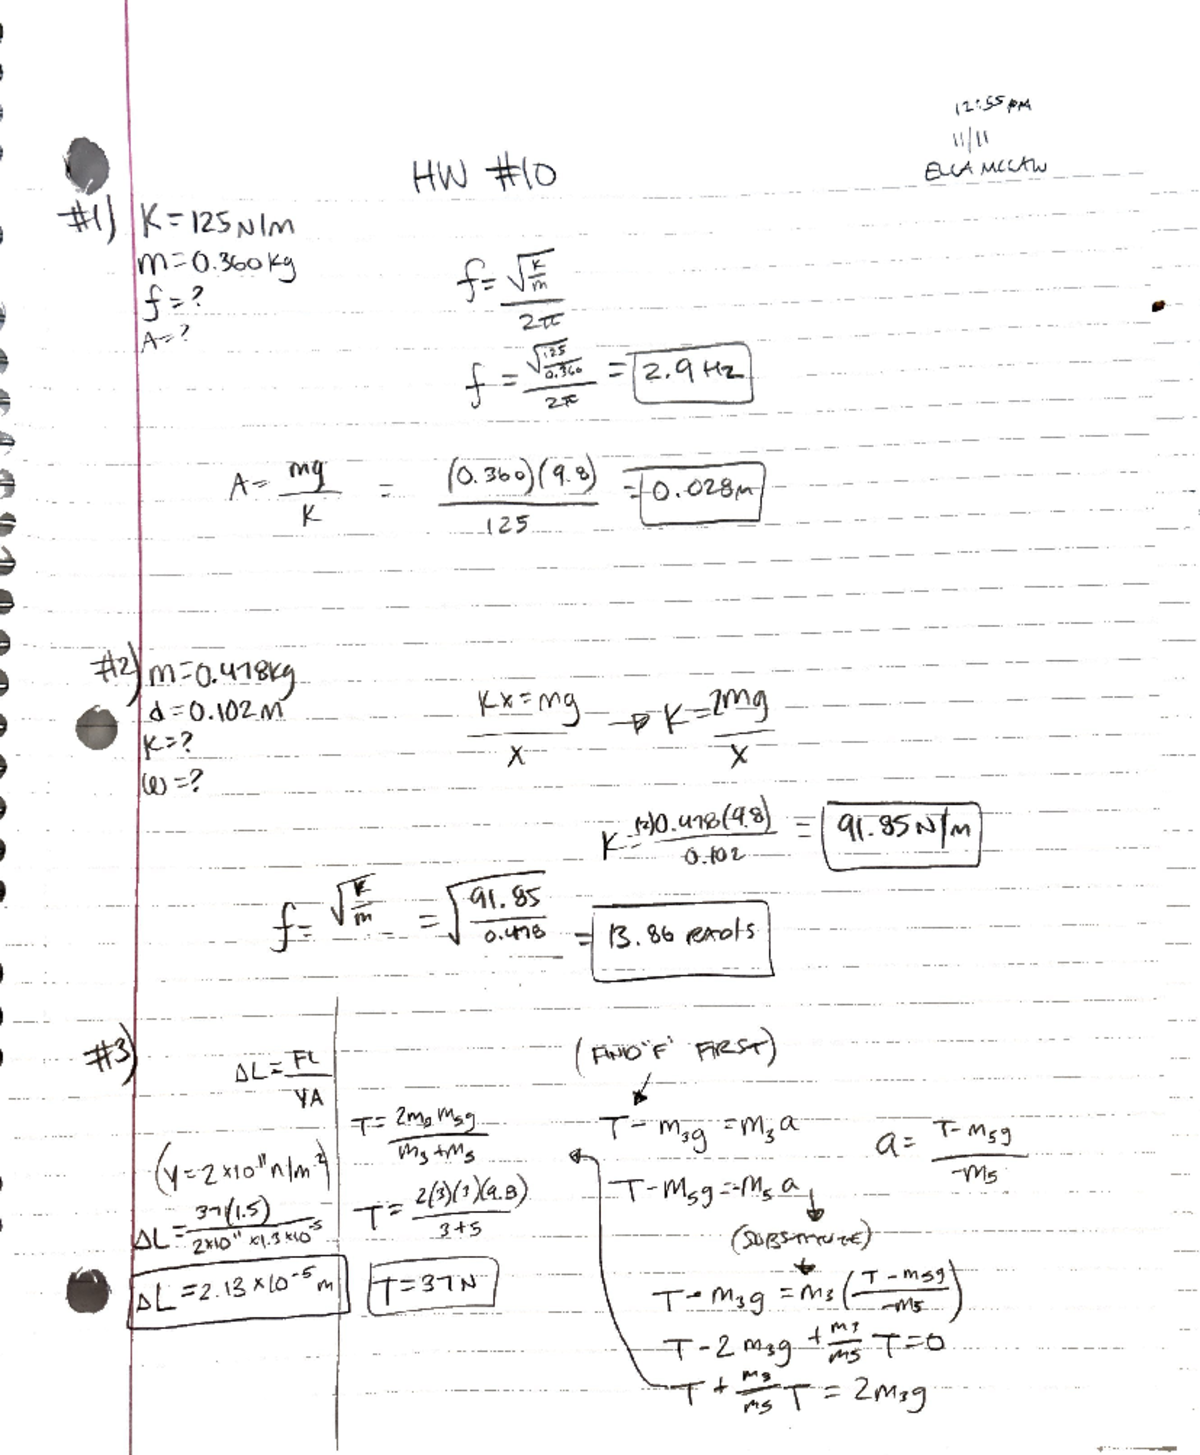 12:55 PM
11/11
ELLA MCCAW
HW #10
#1) K = 125 N/m
m = 0.360 kg
f = ?
A = ?
f = √(k/m) / 2π
f = √(125/0.360) / 2π = 2.9 Hz
A = mg/K = (0.360)(9.8)/125 = 0.028m
#2) m = 0.478kg
d = 0.102 m
K = ?
ω = ?
Kx = mg / x → K = 2mg / x
K = (2)0.478(9.8) / 0.102 = 91.85 N/m
f = √(k/m) = √(91.85/0.478) = 13.86 rad/s
#3)
ΔL = FL / YA
(Y = 2×10¹¹ n/m²)
ΔL = 37(1.5) / 2×10¹¹ ×1.3×10⁻⁵
ΔL = 2.13 ×10⁻⁵ m
T = 2m₃m₅g / m₃+m₅
T = 2(3)(5)(9.8) / 3+5
T = 37 N
(FIND "F" FIRST)
T - m₃g = m₃a
T - m₅g = -m₅a
a = T - m₅g / -m₅
(SUBSTITUTE)
T - m₃g = m₃(T - m₅g / -m₅)
T - 2m₃g + m₃/m₅ T = 0
T + m₃/m₅ T = 2m₃g